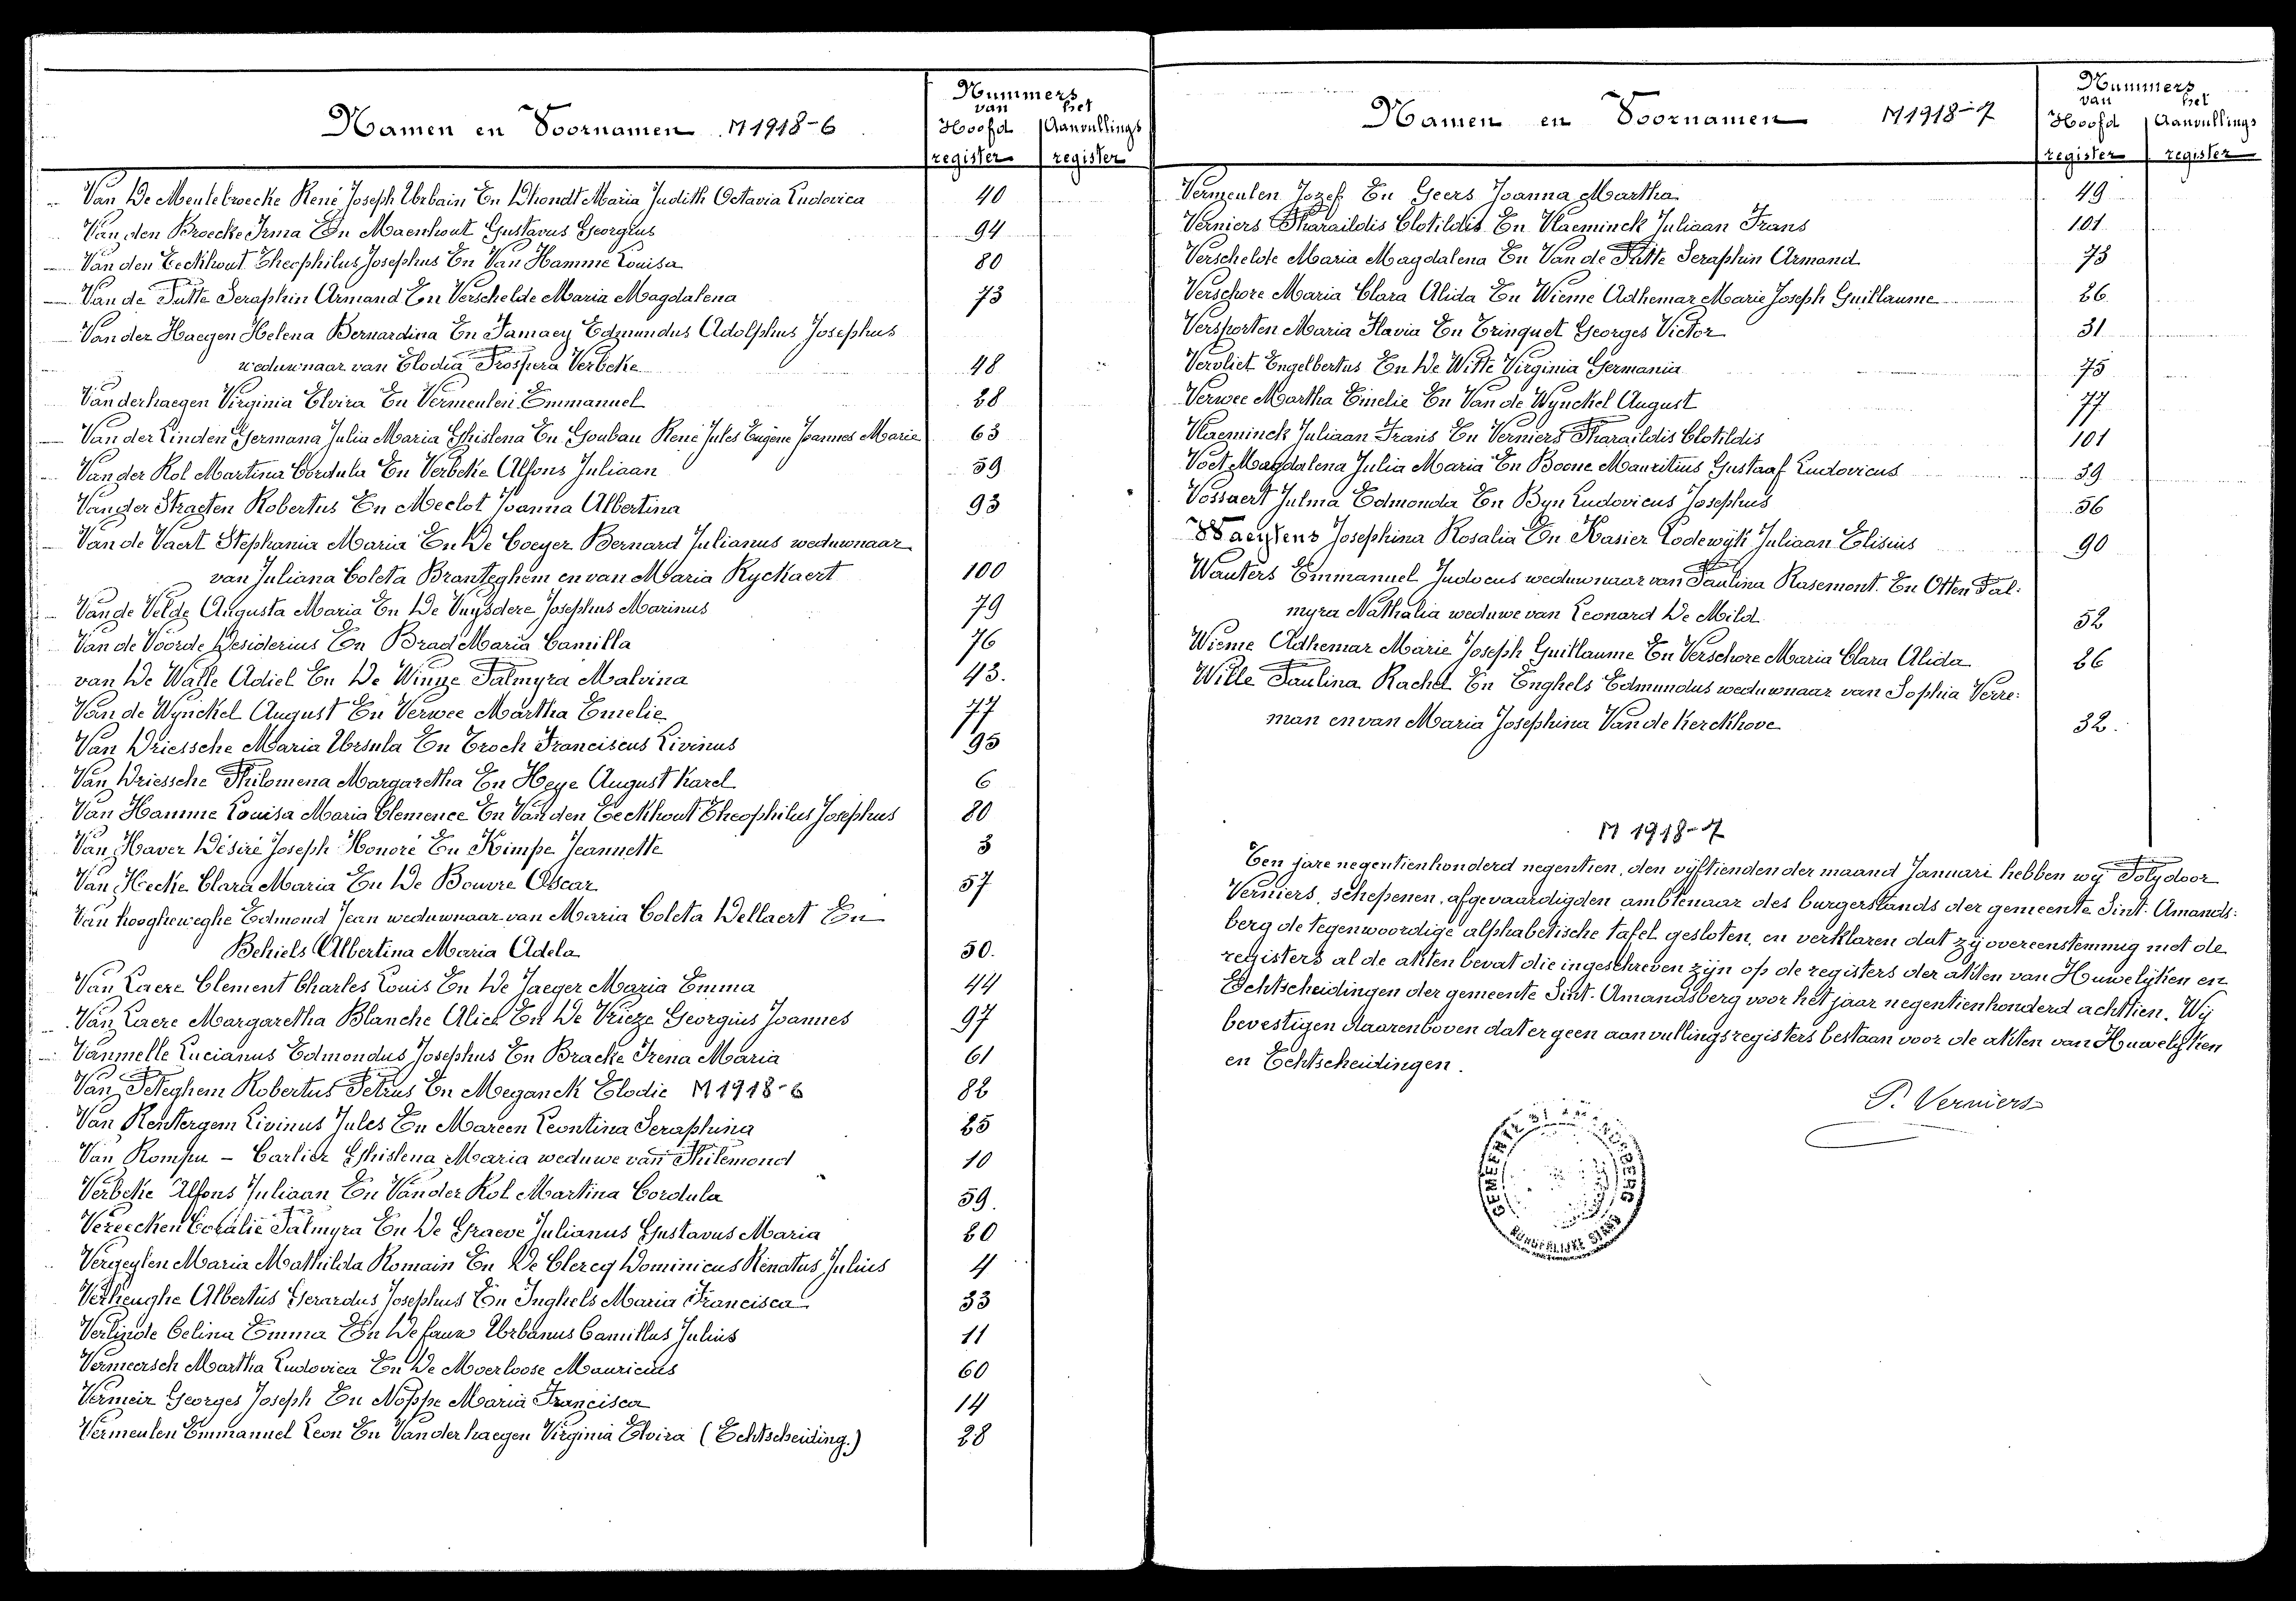 Namen en Voornamen M1918-6
Nummers
van het
Hoofd Aanvullings
register register
Van De Meulebroecke René Joseph Urbain En Dhondt Maria Judith Octavia Ludovica 40
Van den Broecke Irma En Maenhout Gustavus Georgius 94
Van den Eeckhout Theophilus Josephus En Van Hamme Louisa 80
Van de Putte Seraphin Armand En Verschelde Maria Magdalena 73
Van der Haegen Helena Bernardina En Pamaey Edmundus Adolphus Josephus
weduwnaar van Elodia Prospera Verbeke 48
Vanderhaegen Virginia Elvira En Vermeulen Emmanuel 28
Van der Linden Germana Julia Maria Ghislena En Goubau René Jules Eugène Joannes Marie 63
Van der Kol Martina Cordula En Verbeke Alfons Juliaan 59
Van der Straeten Robertus En Meclot Joanna Albertina 93
Van de Vaert Stephania Maria En De Coeyer Bernard Julianus weduwnaar
van Juliana Coleta Branteghem en van Maria Ryckaert 100
Van de Velde Augusta Maria En De Vuysdere Josephus Marinus 79
Van de Voorde Desiderius En Brad Maria Camilla 76
van De Walle Adiel En De Winne Palmyra Malvina 43.
Van de Wynckel August En Verwee Martha Emelie 77
Van Driessche Maria Ursula En Troch Franciscus Livinus 95
Van Driessche Philomena Margaretha En Heye August Karel 6
Van Hamme Louisa Maria Clemence En Van den Eeckhout Theophilus Josephus 80
Van Haver Désiré Joseph Honoré En Kimpe Jeannette 3
Van Hecke Clara Maria En De Bouvre Oscar 57
Van hoogheweghe Edmond Jean weduwnaar van Maria Coleta Dellaert En
Behiels Albertina Maria Adela 50.
Van Laere Clement Charles Louis En De Jaeger Maria Emma 44
Van Laere Margaretha Blanche Alice En De Vrieze Georgius Joannes 97
Vanmelle Lucianus Edmondus Josephus En Bracke Irena Maria 61
Van Peteghem Robertus Petrus En Meganck Elodie M1918-6 82
Van Rentergem Livinus Jules En Mareen Leontina Seraphina 25
Van Rompu - Carlier Ghislena Maria weduwe van Philemond 10
Verbeke Alfons Juliaan En Van der Kol Martina Cordula 59.
Vereecken Coralie Palmyra En De Graeve Julianus Gustavus Maria 20
Vergeylen Maria Mathilda Romain En De Clercq Dominicus Renatus Julius 4
Verheughe Albertus Gerardus Josephus En Inghels Maria Francisca 33
Verlinde Celina Emma En Defauw Urbanus Camillus Julius 11
Vermeersch Martha Ludovica En De Moerloose Mauricius 60
Vermeir Georges Joseph En Noppe Maria Francisca 14
Vermeulen Emmanuel Leon En Vanderhaegen Virginia Elvira (Echtscheiding.) 28
Namen en Voornamen M1918-7
Nummers
van het
Hoofd Aanvullings
register register
Vermeulen Jozef En Geers Joanna Martha 49
Verniers Pharaildis Clotildis En Vlaeminck Juliaan Frans 101
Verschelde Maria Magdalena En Van de Putte Seraphin Armand 73
Verschore Maria Clara Alida En Wieme Adhemar Marie Joseph Guillaume 26
Versporten Maria Flavia En Trinquet Georges Victor 31
Vervliet Engelbertus En De Witte Virginia Germania 75
Verwee Martha Emelie En Van de Wynckel August 77
Vlaeminck Juliaan Frans En Verniers Pharaildis Clotildis 101
Voet Magdalena Julia Maria En Boone Mauritius Gustaaf Ludovicus 39
Vossaert Julma Edmonda En Byn Ludovicus Josephus 56
Waeytens Josephina Rosalia En Kasier Lodewijk Juliaan Elisius 90
Wauters Emmanuel Judocus weduwnaar van Paulina Rasemont. En Otten Pal:
myra Nathalia weduwe van Leonard De Mild 52
Wieme Adhemar Marie Joseph Guillaume En Verschore Maria Clara Alida 26
Wille Paulina Rachel En Enghels Edmundus weduwnaar van Sophia Verre:
man en van Maria Josephina Van de Kerckhove 32.
M 1918-7
Ten jare negentienhonderd negentien, den vijftienden der maand Januari hebben wij Polydoor
Verniers, schepenen, afgevaardigden ambtenaar des burgerstands der gemeente Sint-Amands:
berg de tegenwoordige alphabetische tafel gesloten, en verklaren dat zij overeenstemmig met de
registers al de akten bevat die ingeschreven zijn op de registers der akten van Huwelijken en
Echtscheidingen der gemeente Sint-Amandsberg voor het jaar negentienhonderd achttien. Wij
bevestigen daarenboven dat er geen aanvullingsregisters bestaan voor de akten van Huwelijken
en Echtscheidingen.
P. Verniers
GEMEENTE ST AMANDSBERG
BURGERLIJKE STAND